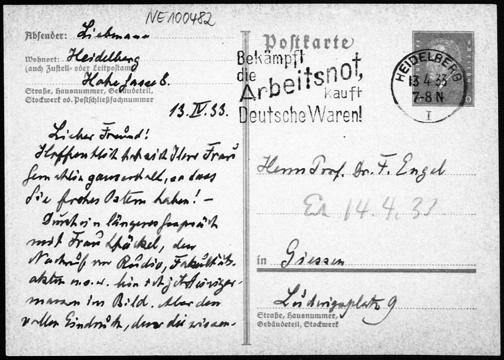 NE100482
Absender: Liebmann
Wohnort: Heidelberg
(auch Zustell- oder Leitpostamt)
Straße, Hausnummer, Gebäudeteil,
Stockwerk od. Postschließfachnummer
13. IV. 33.
Lieber Freund!
Hoffentlich hat sich Ihre Frau
Gemahlin ganz erholt, so dass
Sie frohes Ostern haben! –
Durch ein längeres Gespräch
mit Frau
Nachruf im Radio, Fakultäts-
akten u.s.w. bin ich jetzt
im Bild. Aber den
vollen Eindruck, den die
Postkarte
Bekämpft
die
Arbeitsnot,
kauft
Deutsche Waren!
HEIDELBERG
13.4.33
7-8 N
I
Herrn Prof. Dr. F. Engel
14.4.33
in Giessen
Ludwigsplatz 9
Straße, Hausnummer,
Gebäudeteil, Stockwerk